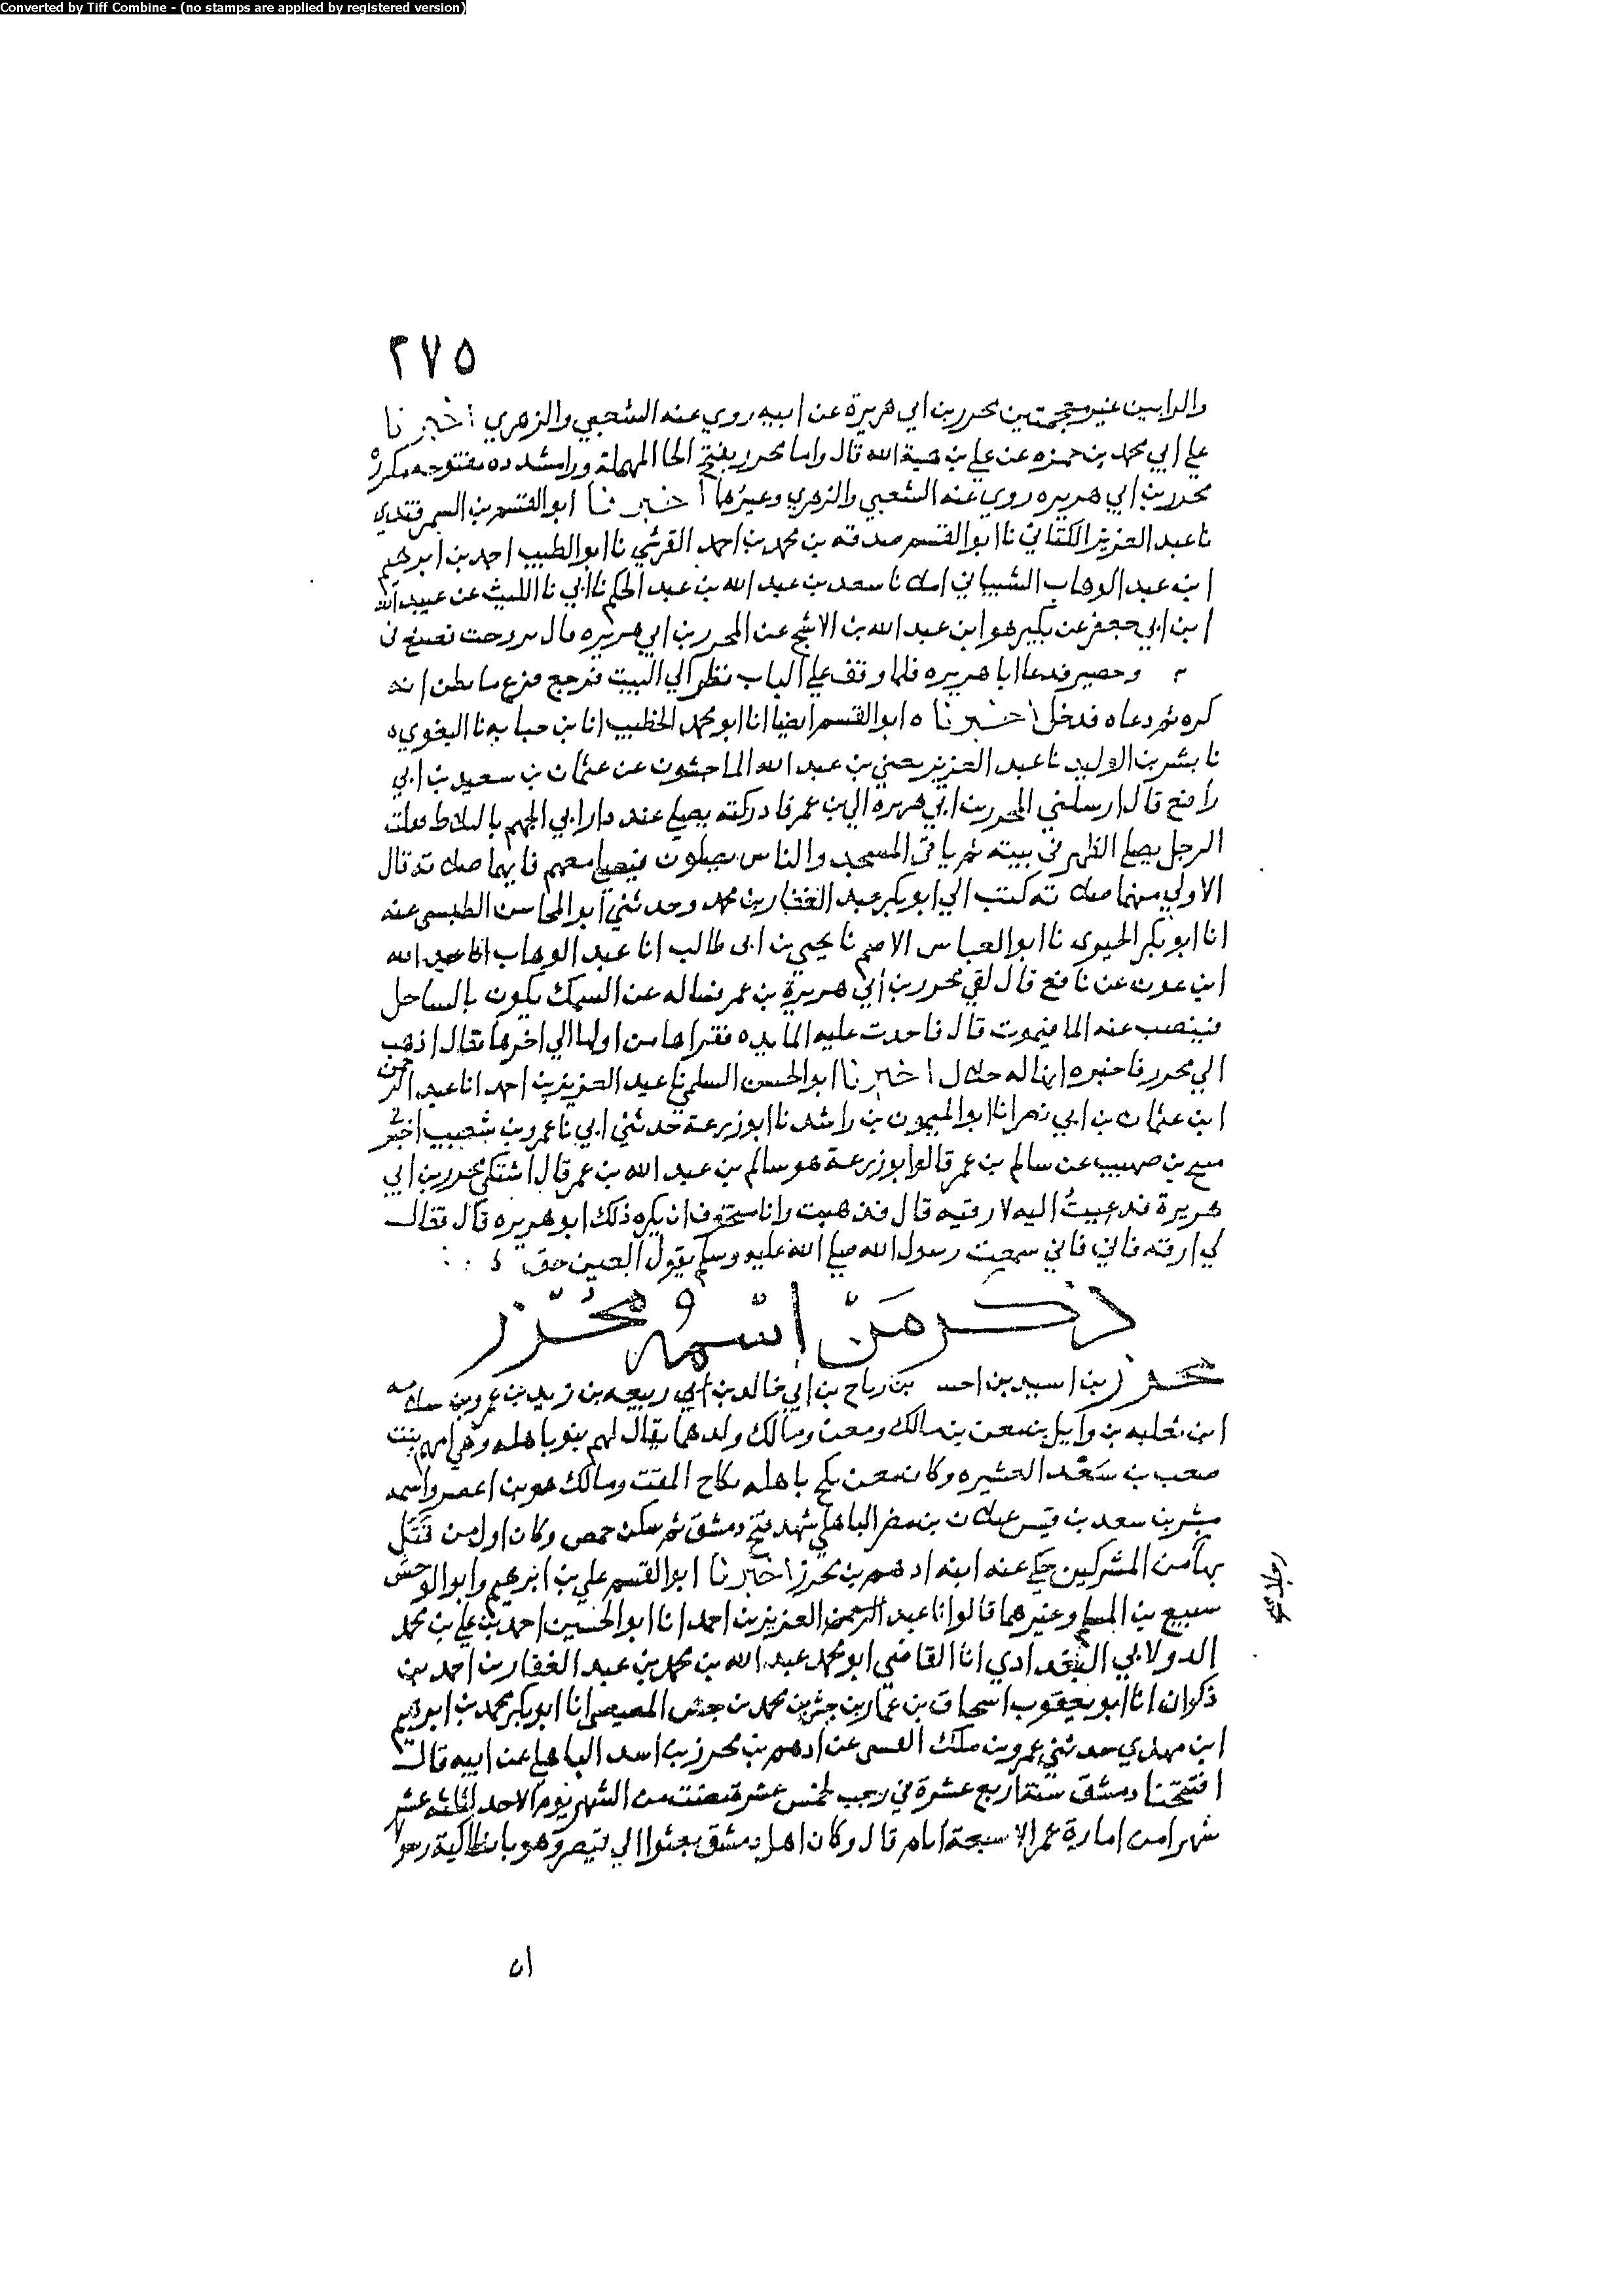 Converted by Tiff Combine - (no stamps are applied by registered version)
٢٧٥
والرايين غير معجمتين محرر بن ابي هريرة عن ابيه روي عنه الشعبي والزهري اخبرنا
علي ابي محمد بن حمزه عن علي بن هبة الله قال واما محرر بفتح الحا المهملة ورا مشدده مفتوحه مكررة
محرر بن ابي هريره روي عنه الشعبي والزهري وغيرهما اخبرنا ابو القسم بن السمرقندي
نا عبد العزيز الكتاني نا ابو القسم صدقه بن محمد بن احمد القرشي نا ابو الطيب احمد بن ابرهيم
ابن عبد الوهاب الشيباني نا سعد بن عبد الله بن عبد الحكم نا ابي نا الليث عن عبيد الله
ابن ابي جعفر عن بكير هو ابن عبد الله بن الاشج عن المحرر بن ابي هريره قال
وحصير فدعا ابا هريره فلما وقف علي الباب نظر الي البيت فرجع انه
كره ثم دعاه فدخل اخبرنا ابو القسم ايضا انا ابو محمد الخطيب انا بن حبابه نا البغوي
نا بشر بن الوليد نا عبد العزيز يعني بن عبد الله الماجشون عن عثمان بن سعيد بن ابي
رافع قال ارسلني المحرر بن ابي هريره الي بن عمر فادركته يصلي عند دار ابي الجهم بالبلاط فقلت
الرجل يصلي الظهر في بيته ثم ياتي المسجد والناس يصلون فيصلي معهم فايهما صلاته قال
الاولي منهما صلاته كتب الي ابو بكر عبد الغفار بن محمد وحدثني ابو المحاسن الطبسي عنه
انا ابو بكر الحيري نا ابو العباس الاصم نا يحيى بن ابي طالب انا عبد الوهاب انا عبد الله
ابن عون عن نافع قال لقي محرر بن ابي هريرة بن عمر فساله عن السمك يكون بالساحل
فينضب عنه الما فيموت قال فاخذت عليه المايده فقراها من اولها الي اخرها فقال اذهب
الي محرر فاخبره انها له حلال اخبرنا ابو الحسن السلمي نا عبد العزيز بن احمد انا عبد الرحمن
ابن عثمان بن ابي نصر انا ابو الميمون بن راشد نا ابو زرعة حدثني ابي نا عمرو بن شعيب
بن صهيب عن سالم بن عمر قال ابو زرعة هو سالم بن عبد الله بن عمر قال اشتكي محرر بن ابي
هريرة فدعيت اليه لارقيه قال فذهبت وانا متخوف ان يكره ذلك ابو هريره قال فقال
لي ارقه فاني سمعت رسول الله صلي الله عليه وسلم يقول العين حق
ذكر من اسمه محرز
محرز بن اسيد بن بن رياح بن ابي خالد بن ابي ربيعه بن زيد بن عمرو بن سلامه
ابن ثعلبه بن وايل بن معن بن مالك ومعن ومالك ولدهما يقال لهم بنو باهله وهي امهم بنت
صعب بن سعد العشيره وكان معن نكح باهله نكاح المقت ومالك هو بن اعصر واسمه
بن سعد بن قيس عيلان بن مضر الباهلي شهد فتح دمشق ثم سكن حمص وكان اول من قتل
بها من المشركين حكي عنه ابنه ادهم بن محرز اخبرنا ابو القسم علي بن ابرهيم وابو الوحش
سبيع بن المسلم وغيرهما قالوا انا عبد الرحمن العزيز بن احمد انا ابو الحسين احمد بن علي بن محمد
الدولابي البغدادي انا القاضي ابو محمد عبد الله بن محمد بن عبد الغفار بن احمد بن
ذكوان انا ابو يعقوب اسحاق بن عمار بن بن محمد بن المصيصي انا ابو بكر محمد بن ابرهيم
ابن مهدي حدثني عمرو بن ملك العبسي عن ادهم بن محرز بن اسد الباهلي عن ابيه قال
افتتحنا دمشق سنة اربع عشرة في رجب لخمس عشرة مضت من الشهر يوم الاحد لثلثه عشر
شهرا من امارة عمر الا سبعة ايام قال وكان اهل دمشق بعثوا الي قيصر وهو بانطاكية رسولا
ان